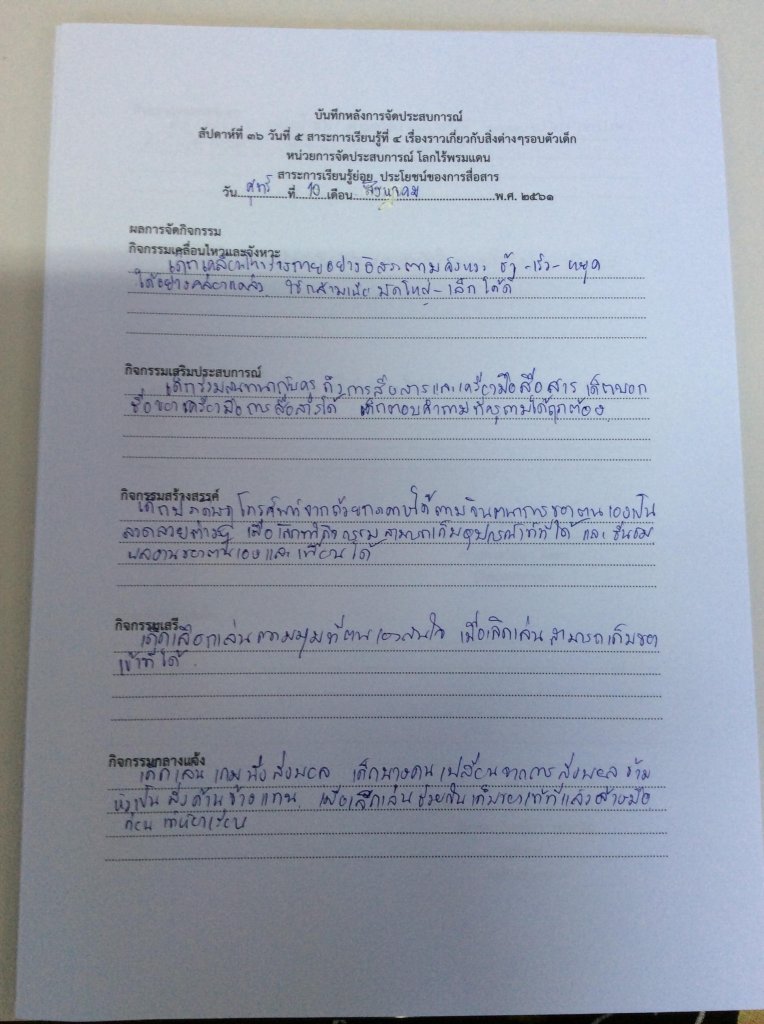 บันทึกหลังการจัดประสบการณ์
สัปดาห์ที่ ๓๖ วันที่ ๕ สาระการเรียนรู้ที่ ๔ เรื่องราวเกี่ยวกับสิ่งต่างๆรอบตัวเด็ก
หน่วยการจัดประสบการณ์ โลกไร้พรมแดน
สาระการเรียนรู้ย่อย ประโยชน์ของการสื่อสาร
วัน ศุกร์ ที่ 10 เดือน สิงหาคม พ.ศ. ๒๕๖๑
ผลการจัดกิจกรรม
กิจกรรมเคลื่อนไหวและจังหวะ
เด็กเคลื่อนไหวร่างกายอย่างอิสระตามจังหวะ ช้า -เร็ว- หยุด
ได้อย่างคล่องแคล่ว ใช้กล้ามเนื้อ มัดใหญ่ - เล็ก ได้ดี
กิจกรรมเสริมประสบการณ์
เด็กร่วมสนทนากับครู ถึงการสื่อสารและเครื่องมือสื่อสาร เด็กบอก
ชื่อของเครื่องมือการสื่อสารได้ เด็กตอบคำถามที่ครูถามได้ถูกต้อง
กิจกรรมสร้างสรรค์
เด็กประดิษฐ์โทรศัพท์จากถ้วยกระดาษได้ตามจินตนาการของตนเองเป็น
ลวดลายต่างๆ เมื่อเลิกทำกิจกรรมสามารถเก็บอุปกรณ์เข้าที่ได้ และ ชื่นชม
ผลงานของตนเองและเพื่อนได้
กิจกรรมเสรี
เด็กเลือกเล่นตามมุมที่ตนเองสนใจ เมื่อเลิกเล่นสามารถเก็บของ
เข้าที่ได้
กิจกรรมกลางแจ้ง
เด็กเล่นเกมนั่งส่งบอล เด็กบางคนเปลี่ยนจากการส่งบอลข้าม
หัวเป็น ส่งด้านข้างแทน เมื่อเลิกเล่นช่วยกันเก็บของเข้าที่แล้วล้างมือ
ก่อน เข้าห้องเรียน